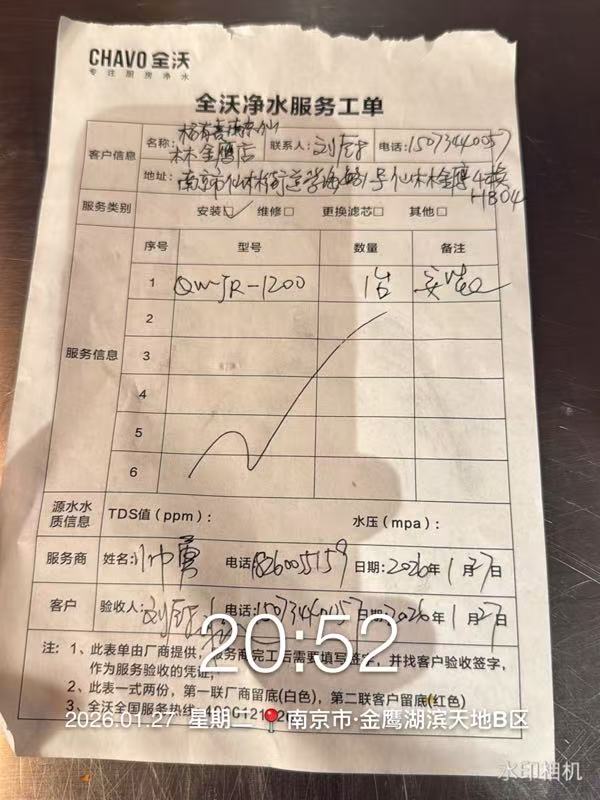 CHAVO 全沃
专注厨房净水
全沃净水服务工单
客户信息 名称: 林金鹰店 联系人: 刘 电话: 15073440057
地址: 南京市仙林街道学海路1号仙林金鹰4栋
HB04
服务类别 安装☑ 维修□ 更换滤芯□ 其他□
序号 型号 数量 备注
1 QW-JR-1200 1台 安装
2
服务信息 3
4
5
6
源水水质信息 TDS值(ppm): 水压(mpa):
服务商 姓名: 帅勇 电话 日期: 2026年1月27日
客户 验收人: 刘 电话: 日期: 2026年1月27日
20:52
注: 1、此表单由厂商提供,服务商完工后需要填写签字,并找客户验收签字,
作为服务验收的凭证;
2、此表一式两份,第一联厂商留底(白色),第二联客户留底(红色)
3、全沃全国服务热线:
2026.01.27 星期二 南京市·金鹰湖滨天地B区
水印相机